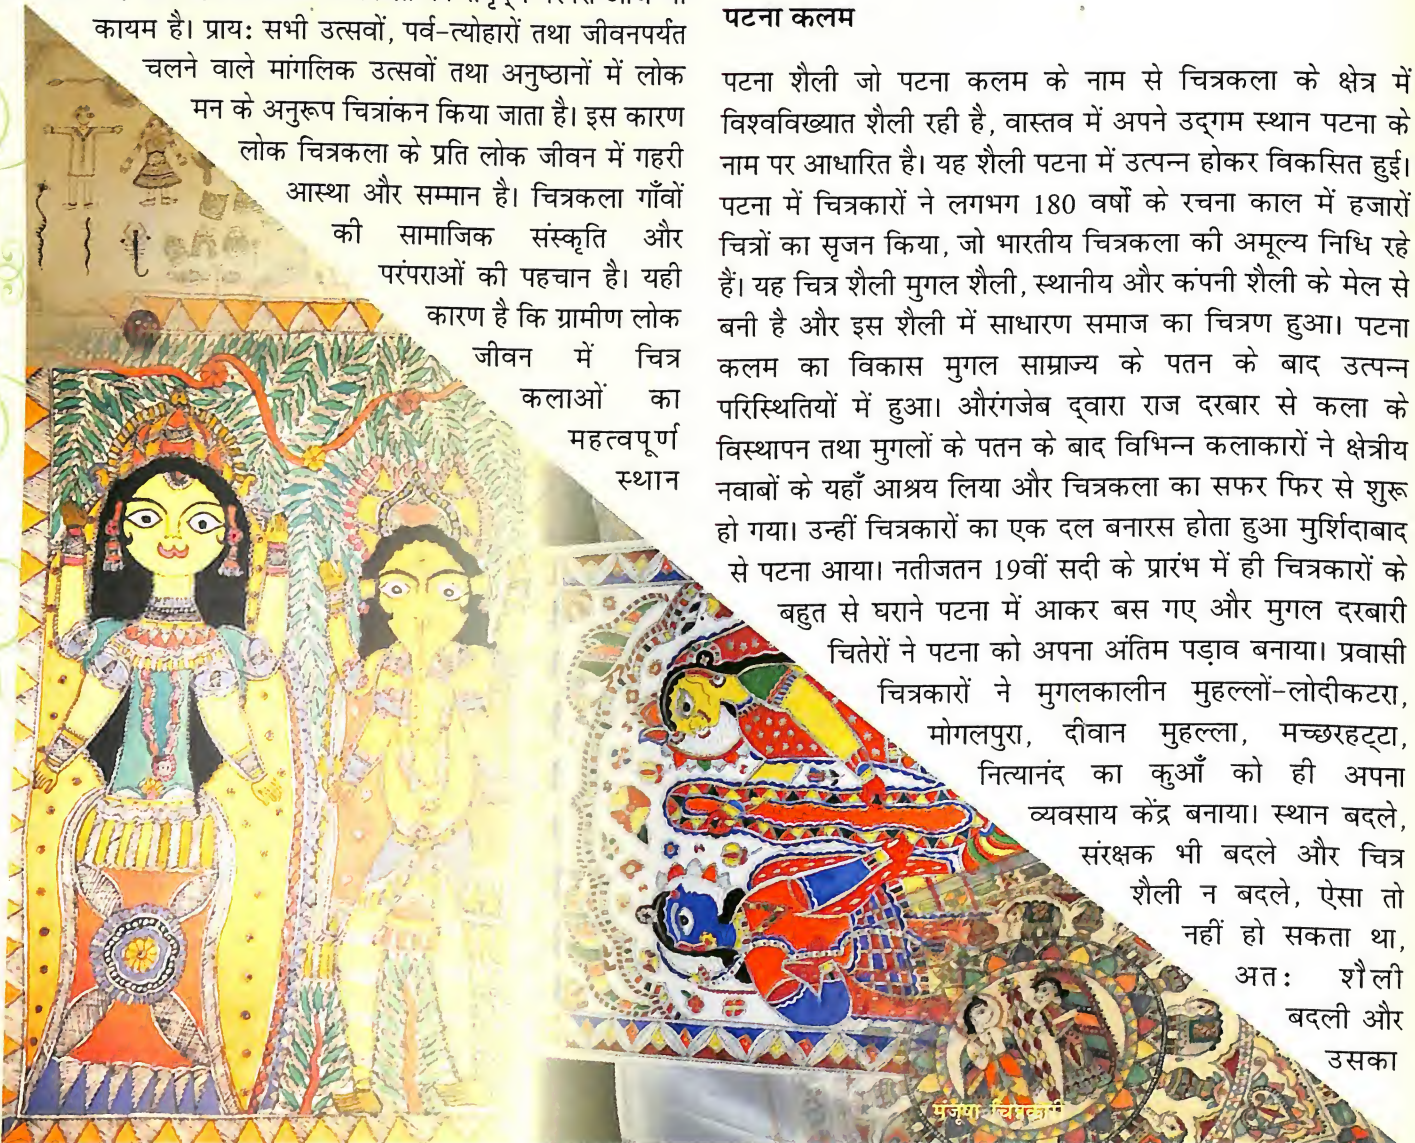 कायम है। प्राय: सभी उत्सवों, पर्व-त्योहारों तथा जीवनपर्यत
चलने वाले मांगलिक उत्सवों तथा अनुष्ठानों में लोक
मन के अनुरूप चित्रांकन किया जाता है। इस कारण
लोक चित्रकला के प्रति लोक जीवन में गहरी
आस्था और सम्मान है। चित्रकला गाँवों
की सामाजिक संस्कृति और
परंपराओं की पहचान है। यही
कारण है कि ग्रामीण लोक
जीवन में चित्र
कलाओं का
महत्वपूर्ण
स्थान
पटना कलम
पटना शैली जो पटना कलम के नाम से चित्रकला के क्षेत्र में
विश्वविख्यात शैली रही है, वास्तव में अपने उद्गम स्थान पटना के
नाम पर आधारित है। यह शैली पटना में उत्पन्न होकर विकसित हुई।
पटना में चित्रकारों ने लगभग 180 वर्षो के रचना काल में हजारों
चित्रों का सृजन किया, जो भारतीय चित्रकला की अमूल्य निधि रहे
हैं। यह चित्र शैली मुगल शैली, स्थानीय और कंपनी शैली के मेल से
बनी है और इस शैली में साधारण समाज का चित्रण हुआ। पटना
कलम का विकास मुगल साम्राज्य के पतन के बाद उत्पन्न
परिस्थितियों में हुआ। औरंगजेब द्वारा राज दरबार से कला के
विस्थापन तथा मुगलों के पतन के बाद विभिन्न कलाकारों ने क्षेत्रीय
नवाबों के यहाँ आश्रय लिया और चित्रकला का सफर फिर से शुरू
हो गया। उन्हीं चित्रकारों का एक दल बनारस होता हुआ मुर्शिदाबाद
से पटना आया। नतीजतन 19वीं सदी के प्रारंभ में ही चित्रकारों के
बहुत से घराने पटना में आकर बस गए और मुगल दरबारी
चितेरों ने पटना को अपना अंतिम पड़ाव बनाया। प्रवासी
चित्रकारों ने मुगलकालीन मुहल्लों-लोदीकटरा,
मोगलपुरा, दीवान मुहल्ला, मच्छरहट्टा,
नित्यानंद का कुआँ को ही अपना
व्यवसाय केंद्र बनाया। स्थान बदले,
संरक्षक भी बदले और चित्र
शैली न बदले, ऐसा तो
नहीं हो सकता था,
अत: शैली
बदली और
उसका
मंजूषा चित्रकारी